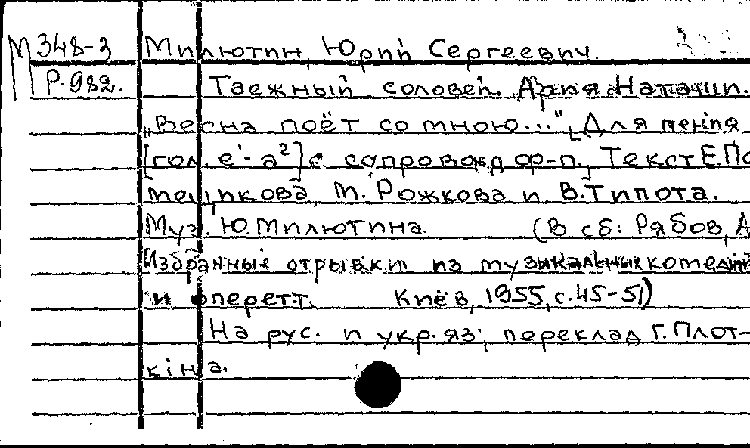 М 348-3 Милютин, Юрий Сергеевич.
Р-982. Таежный соловей. Ария Наташи.
„Весна поёт со мною..." Для пения
[гол. e'-a²] с сопровожд. ф-п. Текст Е.По
мещикова, М. Рожкова и В.Типота.
Муз. Ю.Милютина. (В сб: Рябов, А
Избранные отрывки из музыкальных комедий
и оперетт. Киев, 1955, с.45-51)
На рус. и укр. яз; переклад Г.Плот-
кiна.